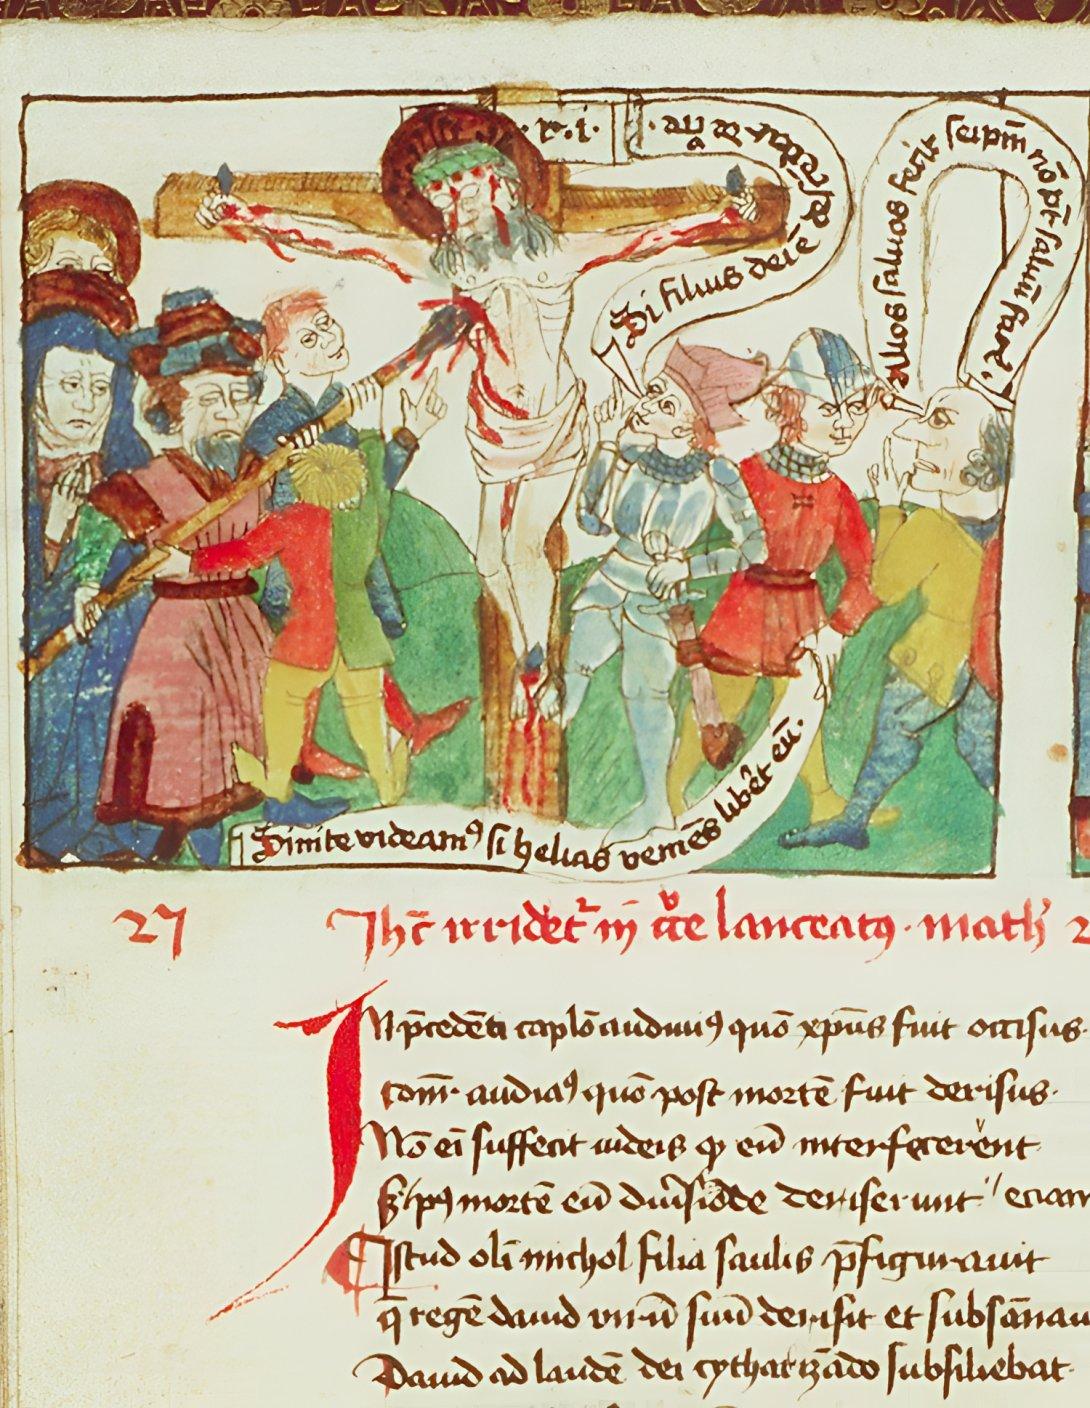 .r.i.
Si filius dei ē descēdat de
Alios saluos fecit seip̄m nō pt̄ saluū facē.
Sinite videamꝰ si helias veniēs libēt eū.
27 Jhc̄ irridet᷑ in cͮce lanceatꝰ. math̓ 2
IN p̄cedēti capl̓o audiuiꝰ quō xp̄us fuit occisus.
audiaꝰ quō post mortē fuit derisus.
Nō ei suffecit iudeis ꝙ eū interfecerent
mortē eū deriserunt
Istud oli michol filia saulis p̄figurauit
q̄ regē dauid virū suū derisit et subsānau
Dauid ad laudē dei cytharizādo subsiliebat.